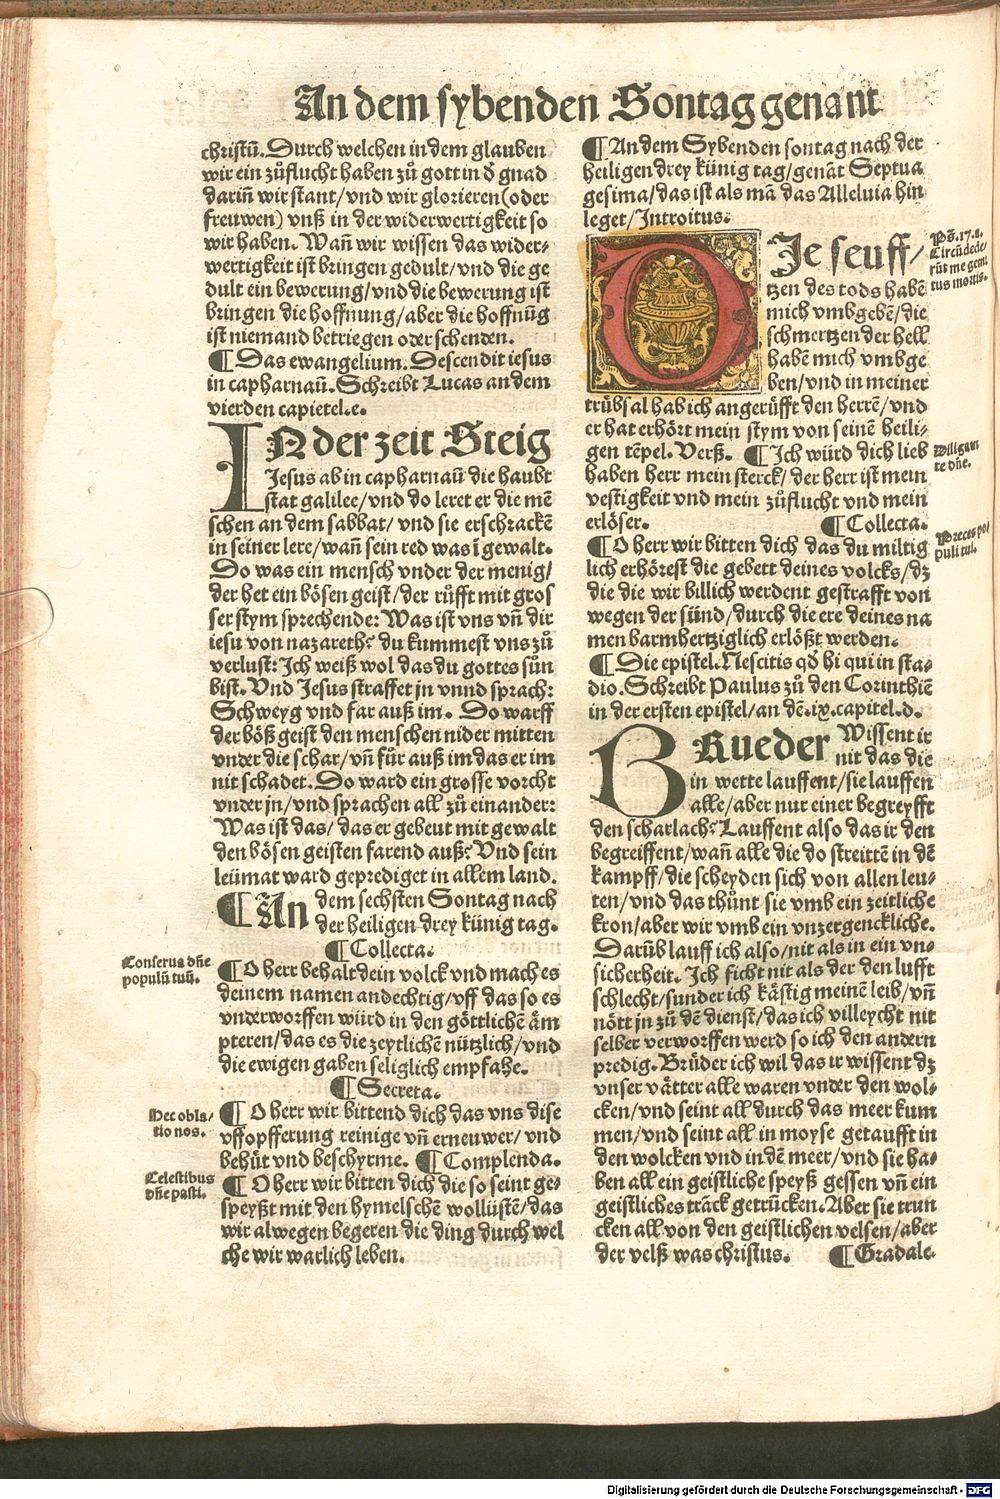 An dem sybenden Sontag genant
christū. Durch welchen in dem glauben
wir ein zůflucht haben zů gott in d̄ gnad
dariñ wir stant/vnd wir glorieren (oder
freuwen) vnß in der widerwertigkeit so
wir haben. Wañ wir wissen das wider⸗
wertigkeit ist bringen gedult/vnd die ge
dult ein bewerung/vnd die bewerung ist
bringen die hoffnung/aber die hoffnūg
ist niemand betriegen oder schenden.
¶ Das ewangelium. Descendit iesus
in capharnaū. Schreibt Lucas an dem
vierden capietel.e.
IN der zeit Steig
Jesus ab in capharnaū die haubt
stat galilee/vnd do leret er die mē
schen an dem sabbat/ vnd sie erschrackē
in seiner lere/wañ sein red was ī gewalt.
Do was ein mensch vnder der menig/
der het ein bösen geist/der rüfft mit gros
ser stym sprechende: Was ist vns vñ dir
iesu von nazareth? du kummest vns zů
verlust: Ich weiß wol das du gottes sůn
bist. Vnd Jesus straffet jn vnnd sprach:
Schweyg vnd far auß im. Do warff
der böß geist den menschen nider mitten
vnder die schar/vñ für auß im das er im
nit schadet. Do ward ein grosse vorcht
vnder jn/vnd sprachen all zů einander:
Was ist das/das er gebeut mit gewalt
den bösen geisten farend auß? Vnd sein
leümat ward geprediget in allem land.
¶ An dem sechsten Sontag nach
der heiligen drey künig tag.
¶ Collecta.
¶ O herr behalt dein volck vnd mach es
deinem namen andechtig/vff das so es
vnderworffen würd in den göttlichē äm
pteren/das es die zeytlichen nützlich/vnd
die ewigen gaben seliglich empfahe.
¶ Secreta.
¶ O herr wir bittend dich das vns dise
vffopfferung reinige vñ erneuwer/ vnd
behüt vnd beschyrme. ¶ Complenda.
¶ O herr wir bitten dich die so seint ge⸗
speyßt mit den hymelschē wollüstē/das
wir alwegen begeren die ding durch wel
che wir warlich leben.
Conserua dñe
populū tuū.
Hec obla⸗
tio nos.
Celestibus
dñe pasti.
¶ An dem Sybenden sontag nach der
heiligen drey künig tag/genāt Septua
gesima/das ist als mā das Alleluia hin
leget/Introitus.
DIe seuff/
tzen des tods habē
mich vmbgebē/die
schmertzen der hell
habē mich vmbge
ben/vnd in meiner
trübsal hab ich angerüfft den herrē/vnd
er hat erhört mein stym von seinē heili⸗
gen tēpel. Verß. ¶ Ich würd dich lieb
haben herr mein sterck/der herr ist mein
vestigkeit vnd mein zůflucht vnd mein
erlöser. ¶ Collecta.
¶ O herr wir bitten dich das du miltig
lich erhörest die gebett deines volcks/dz
die die wir billich werdent gestrafft von
wegen der sünd/durch die ere deines na
men barmhertziglich erlößt werden.
¶ Die epistel. Nescitis qđ hi qui in sta⸗
dio. Schreibt Paulus zů den Corinthiē
in der ersten epistel/an dē.ix.capitel.d.
BRueder Wissent ir
nit das die
in wette lauffent/sie lauffen
alle/aber nur einer begreyfft
den scharlach? Lauffent also das ir den
begreiffent/wañ alle die do streittē in dē
kampff/die scheyden sich von allen leu⸗
ten/vnd das thůnt sie vmb ein zeitliche
kron/aber wir vmb ein vnzergenckliche.
Darūb lauff ich also/nit als in ein vn⸗
sicherheit. Ich ficht nit als der den lufft
schlecht/sunder ich kästig meinē leib/vñ
nött jn zů dē dienst/das ich villeycht nit
selber verworffen werd so ich den andern
predig. Brüder ich wil das ir wissent dz
vnser vätter alle waren vnder den wol⸗
cken/vnd seint all durch das meer kum
men/vnd seint all in moyse getaufft in
den wolcken vnd in dē meer/vnd sie ha⸗
ben all ein geistliche speyß gessen vñ ein
geistliches trāck getrūcken. Aber sie trun
cken all von den geistlichen velsen/aber
der velß was christus. ¶ Gradale.
Ps. 17.
Circūdede/
rūt me gemi
tus mortis.
Diligam
te dñe.
Preces po/
puli tui.
Digitalisierung gefördert durch die Deutsche Forschungsgemeinschaft - DFG